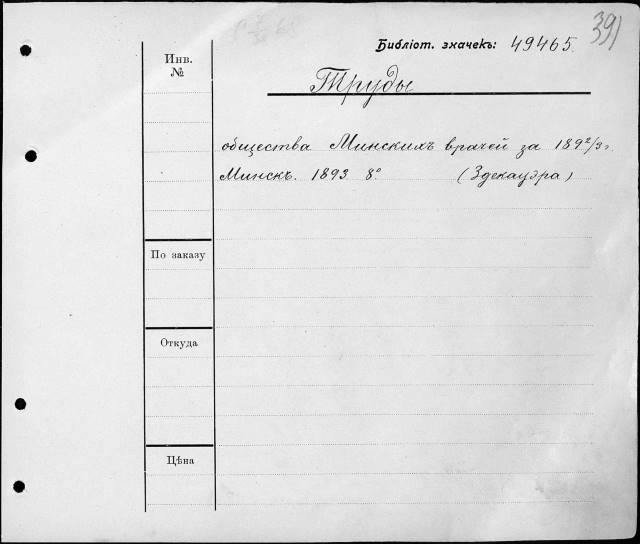 391
Библіот. значекъ: 49465.
Инв.
№
Труды
общества Минскихъ врачей за 189 2/3 г.
Минскъ. 1893 8°. (Здекауэра)
По заказу
Откуда
Цѣна